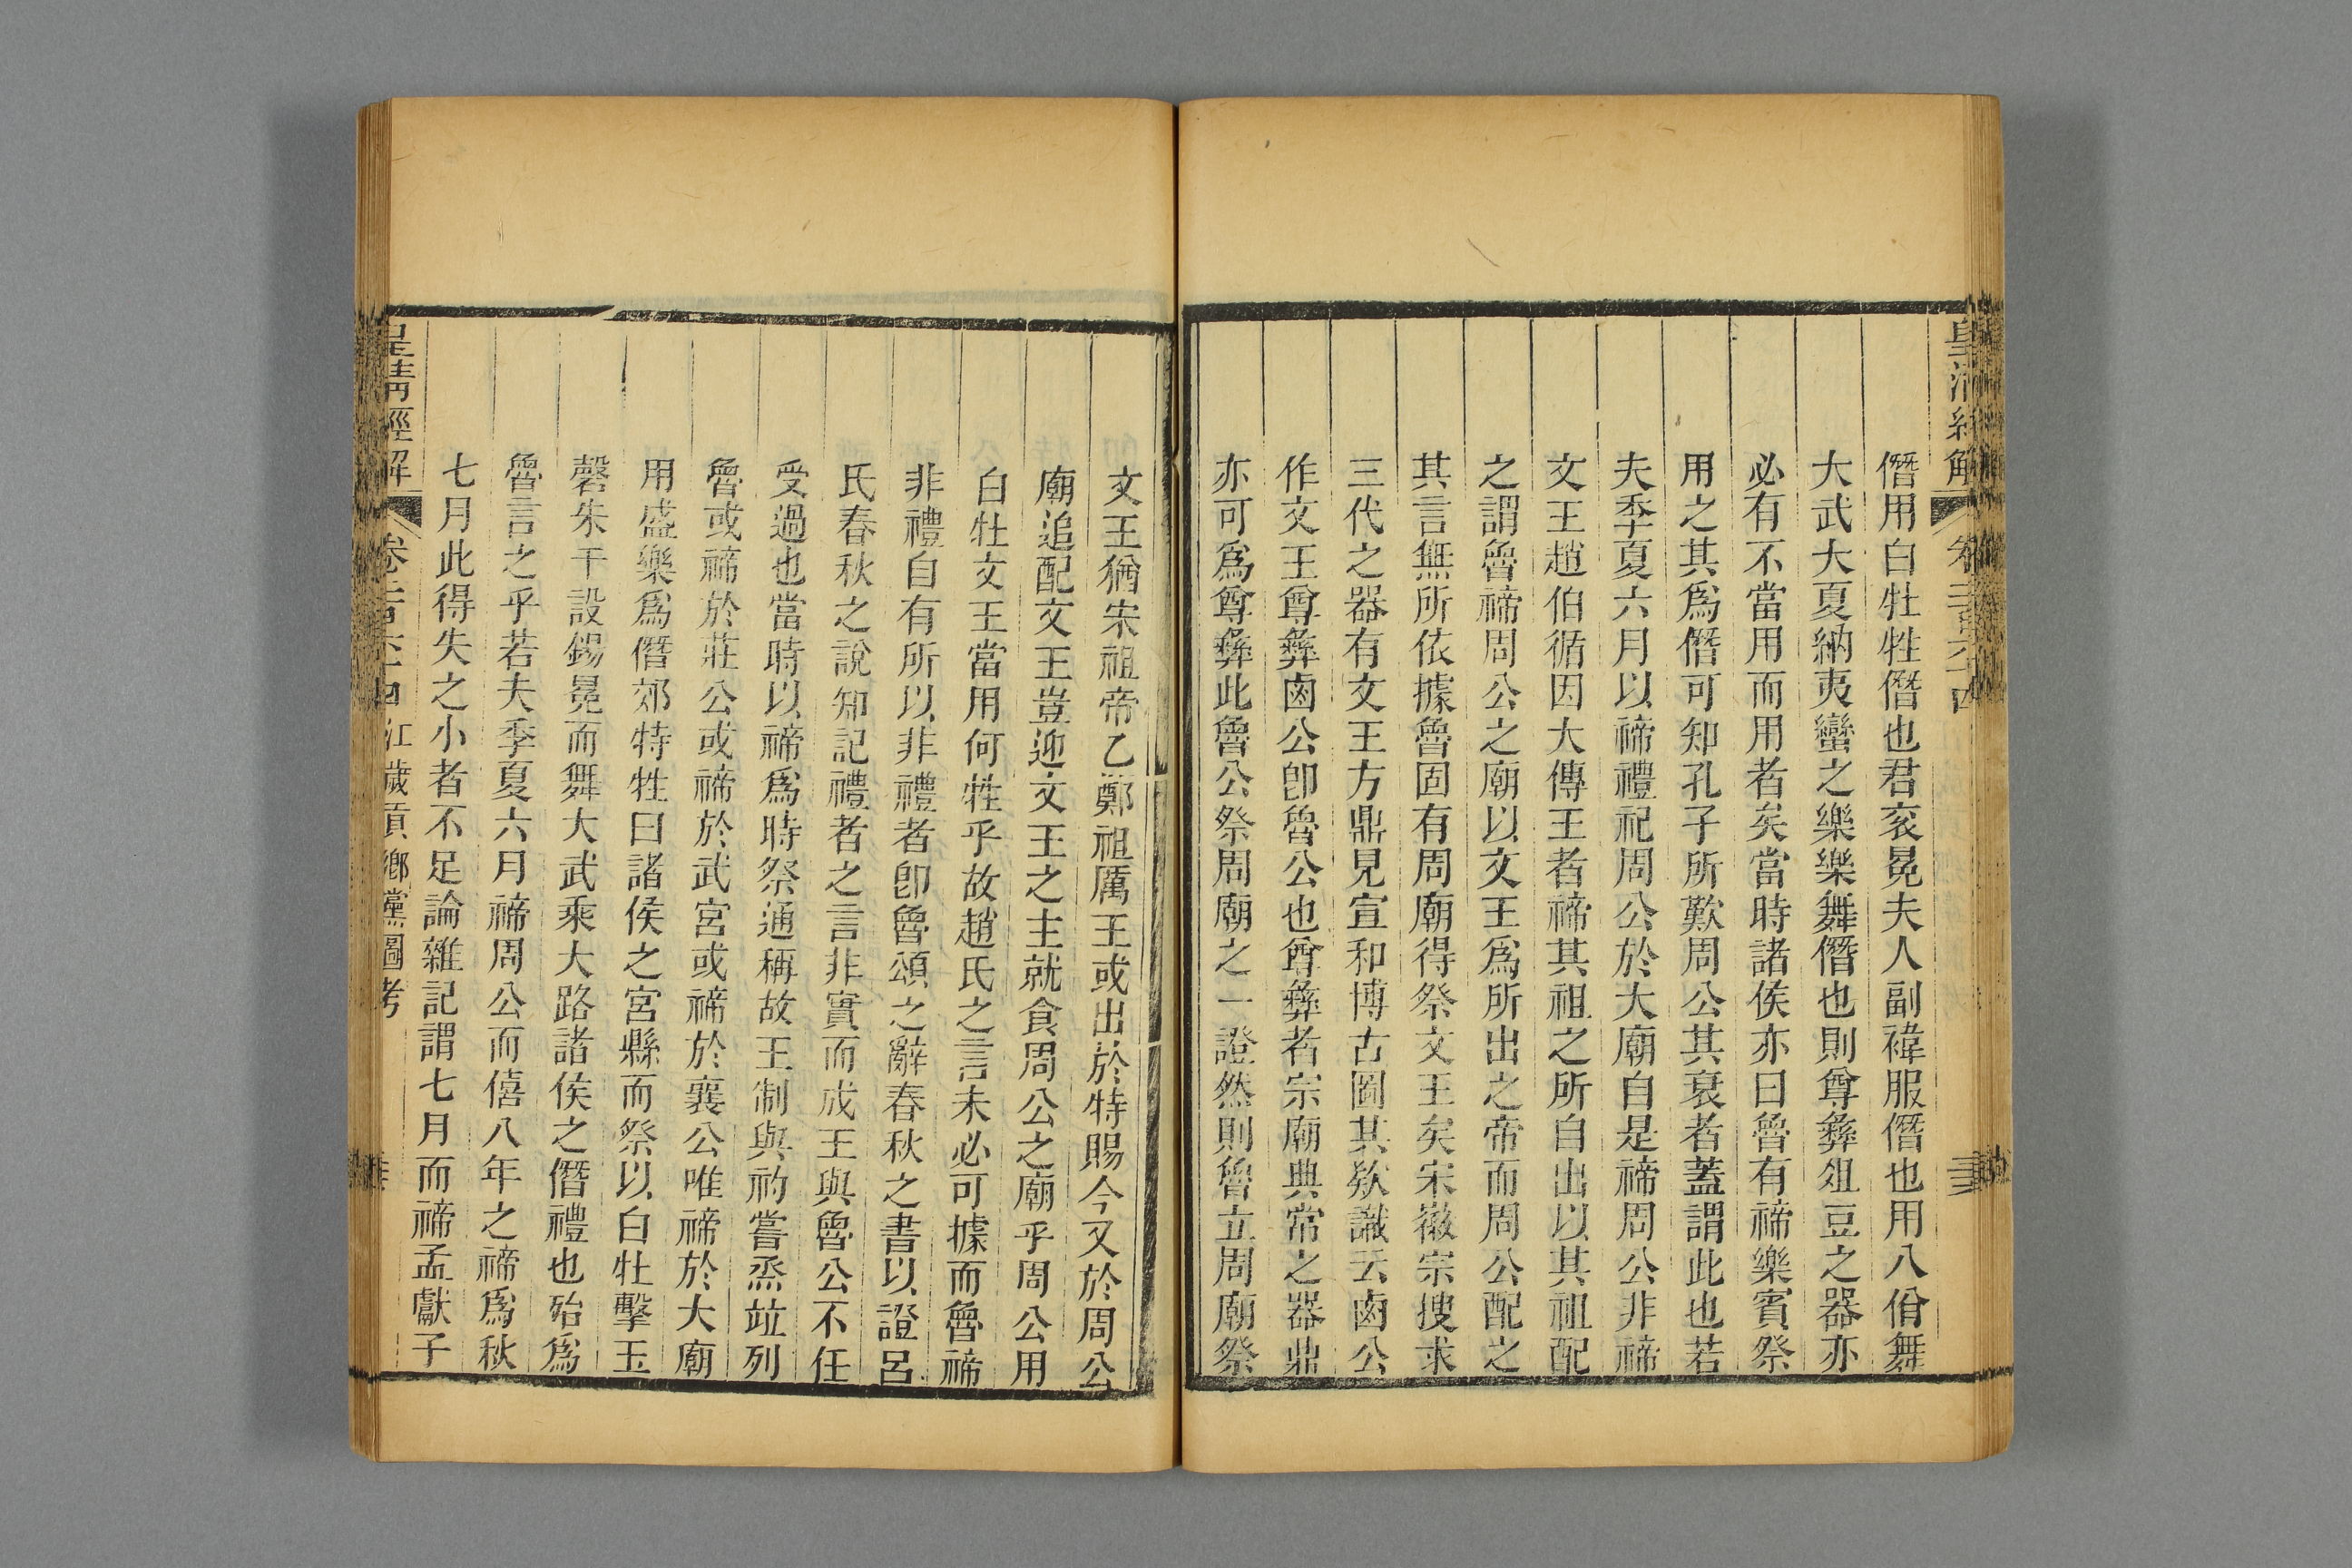 皇清經解
卷二百六十四
僭用白牡牲僭也君衮冕夫人副褘服僭也用八佾舞
大武大夏納夷蠻之樂樂舞僭也則尊彝俎豆之器亦
必有不當用而用者矣當時諸侯亦曰魯有禘樂賓祭
用之其爲僭可知孔子所歎周公其衰者蓋謂此也若
夫季夏六月以禘禮祀周公於大廟自是禘周公非禘
文王趙伯循因大傳王者禘其祖之所自出以其祖配
之謂魯禘周公之廟以文王爲所出之帝而周公配之
其言無所依據魯固有周廟得祭文王矣宋徽宗搜求
三代之器有文王方鼎見宣和博古圖其欵識云鹵公
作文王尊彝鹵公卽魯公也尊彝者宗廟典常之器鼎
亦可爲尊彝此魯公祭周廟之一證然則魯立周廟祭
文王猶宋祖帝乙鄭祖厲王或出於特賜今又於周公
廟追配文王豈迎文王之主就食周公之廟乎周公用
白牡文王當用何牲乎故趙氏之言未必可據而魯禘
非禮自有所以非禮者卽魯頌之辭春秋之書以證呂
氏春秋之說知記禮者之言非實而成王與魯公不任
受過也當時以禘爲時祭通稱故王制與礿嘗烝竝列
魯或禘於莊公或禘於武宮或禘於襄公唯禘於大廟
用盛樂爲僭郊特牲曰諸侯之宮縣而祭以白牡擊玉
磬朱干設錫冕而舞大武乘大路諸侯之僭禮也殆爲
魯言之乎若夫季夏六月禘周公而僖八年之禘爲秋
七月此得失之小者不足論雜記謂七月而禘孟獻子
皇清經解
卷二百六十四
江歲貢鄉黨圖考